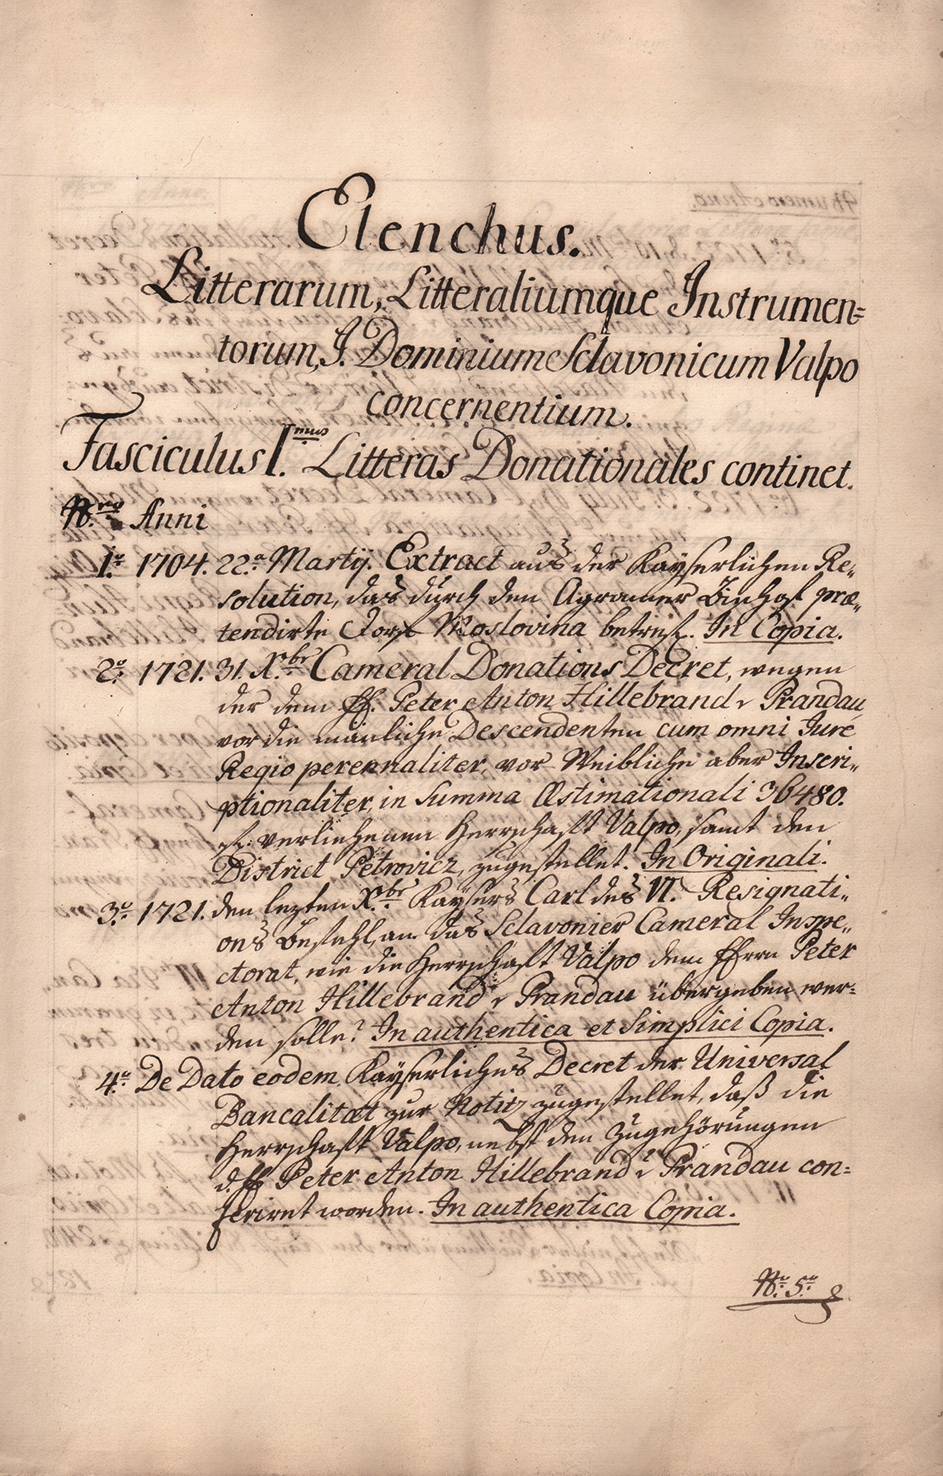 Elenchus.
Litterarum, Litteraliumque Instrumen=
torum, J. Dominium Sclavonicum Valpo
concernentium.
Fasciculus I.mus Litteras Donationales continet.
N.ro Anni
1o 1704. 22a Martij. Extract aus der Kayserlichen Re„
solution, das durch den Agramer Bischof præ„
tendirte Dorf Moslovina betref. In Copia.
2o 1721. 31. Xbr Cameral Donations Decret, wegen
der dem H. Peter Anton Hillebrand v Prandau
vor die mänliche Descendenten cum omni Jure
Regio perennaliter, vor Weibliche aber Inscri„
ptionaliter, in Summa Æstimationali 36480.
f. verliehenen Herrschaft Valpo, samt den
District Petrovicz, zugestellet. In Originali.
3o 1721. den lezten Xbr Kaysers Carl des VI. Resignati„
ons Befehl, an das Sclavonier Cameral Inspe„
ctorat, wie die Herrschaft Valpo dem Herrn Peter
Anton Hillebrand v Prandau übergeben wer=
den solle? In authentica et Simplici Copia.
4o De Dato eodem, Kayserliches Decret der Universal
Bancalitæt zur Notiz zugestellet, daß die
Herrschaft Valpo, nebst den Zugehörungen
Peter Anton Hillebrand v Prandau con=
feriret worden. In authentica Copia.
No. 5o